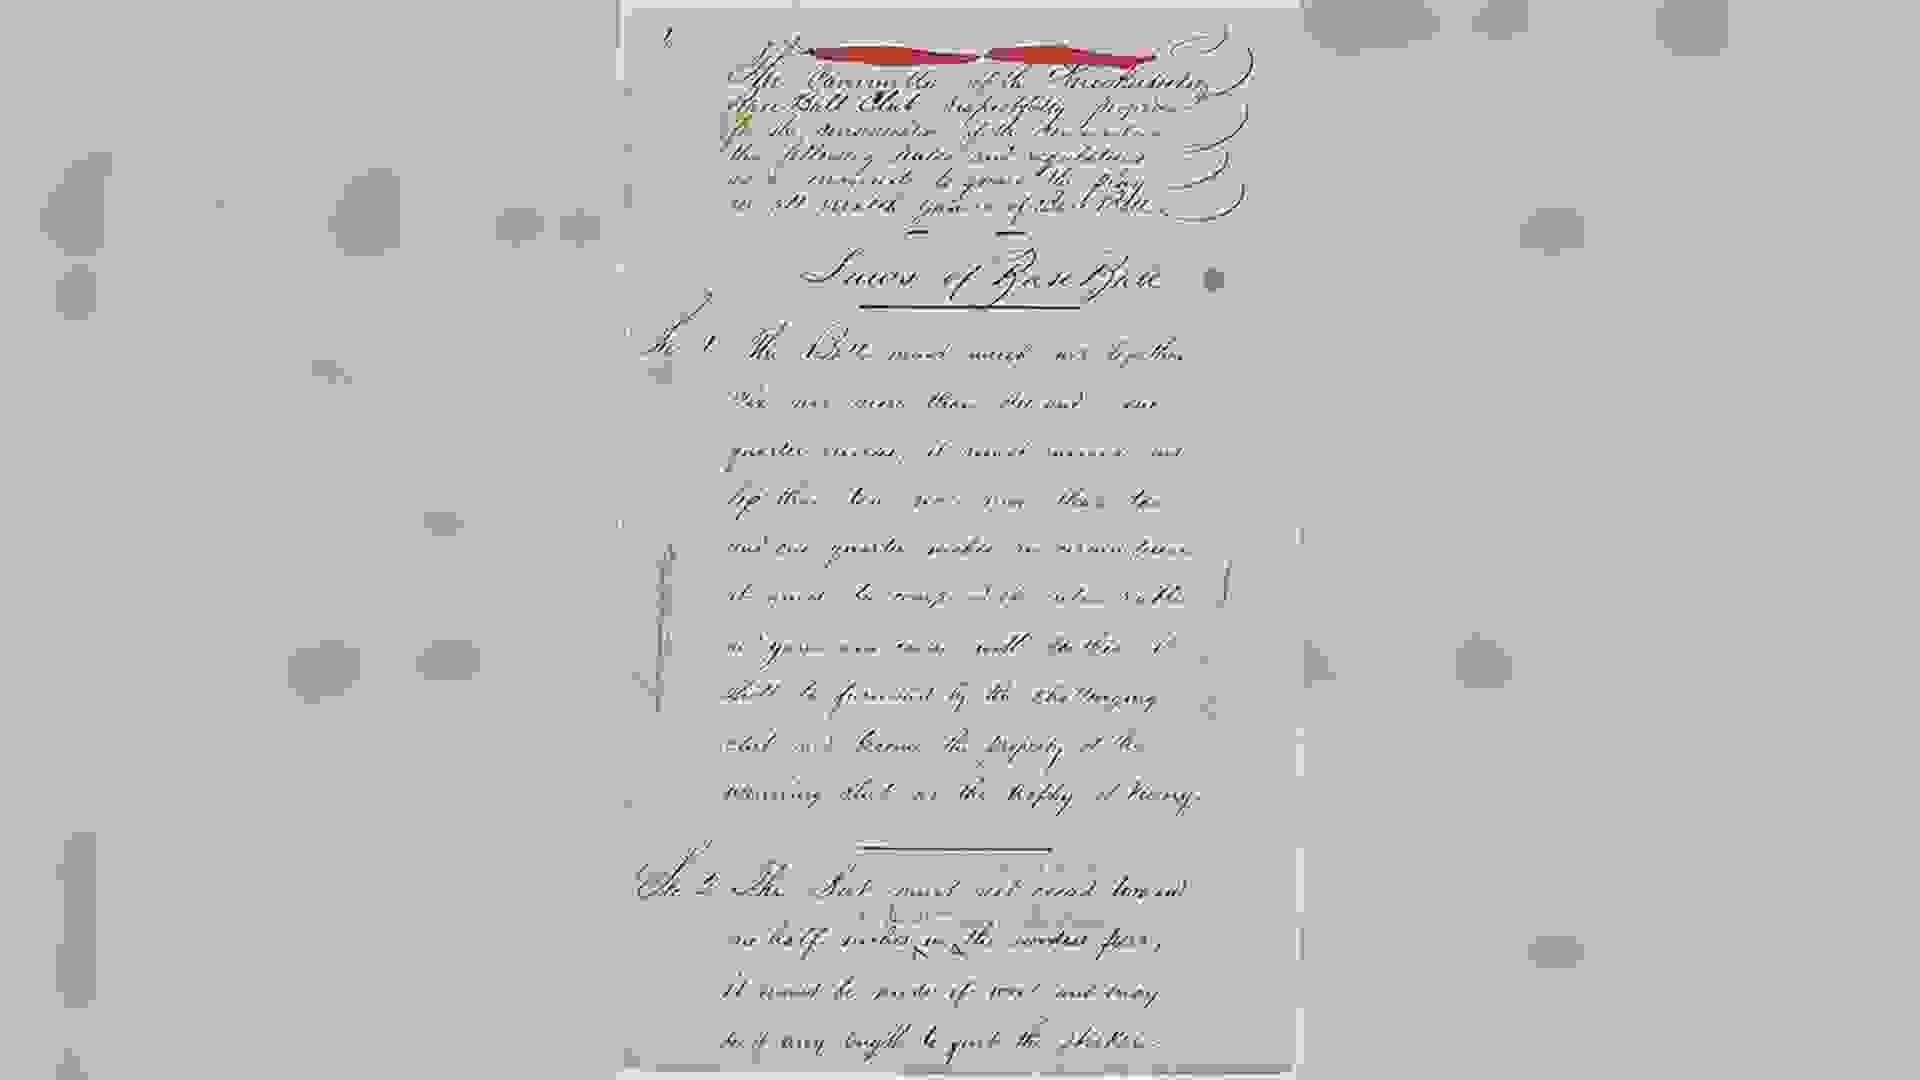 1
The Committee of the Knickerbocker
Base Ball Club respectfully propose
for the consideration of the Convention
the following Rules and regulations
as to govern the play
in all match games of Base Ball.
Laws of Base Ball
Sec 1 The Ball must weigh not less than
Six nor more than six and one
quarter ounces, it must measure not
less than ten nor more than ten
and one quarter inches in circumference
it must be composed of
and
shall be furnished by the challenging
club and become the property of the
winning club as the trophy of Victory.
Sec 2 The Bat must not exceed two and
one half inches in the
it must be made of wood and may
be of any length to suit the striker.